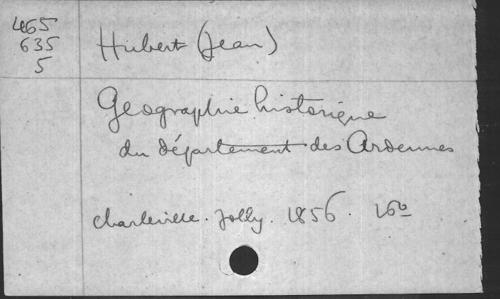 465
635
5
Hubert (Jean)
Géographie historique
du département des Ardennes
Charleville. Jolly. 1856. 16º